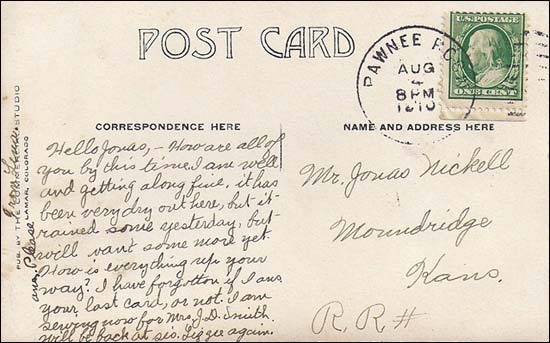 POST CARD
U.S. POSTAGE
ONE CENT
PAWNEE RO
AUG
4
8PM
1910
CORRESPONDENCE HERE
NAME AND ADDRESS HERE
PUB. BY THE COMMERCIAL STUDIO
LAMAR, COLORADO
Hello Jonas, - How are all of
you by this time. I am well
and getting along fine, it has
been very dry out here, but it
rained some yesterday, but
will want some more yet.
How is everything up your
way? I have forgotten if I ans.
your last card, or not. I am
sewing now for Mrs. J.D. Smith.
will be back at sis. Lizzie again.
ans, Please
From
Mr. Jonas Nickell
Moundridge
Kans.
R. R. #